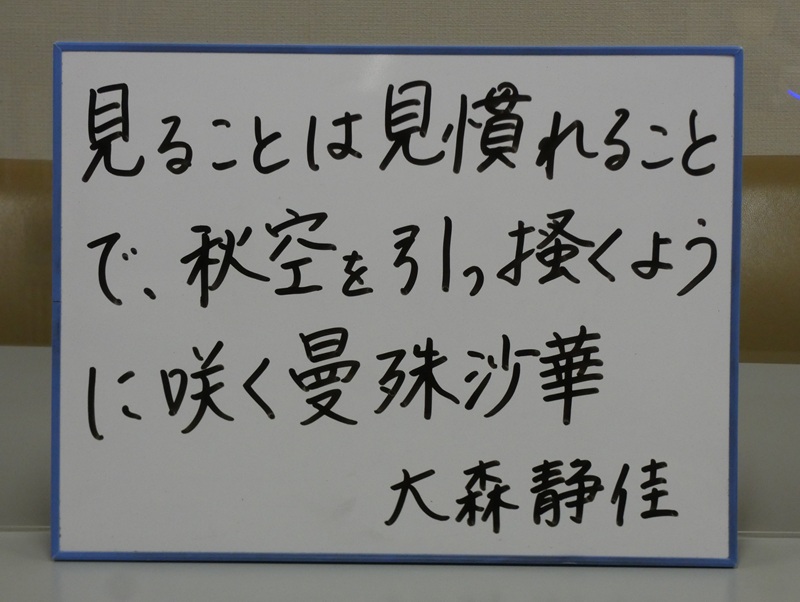 見ることは見慣れること
で、秋空を引っ掻くよう
に咲く曼殊沙華
大森静佳